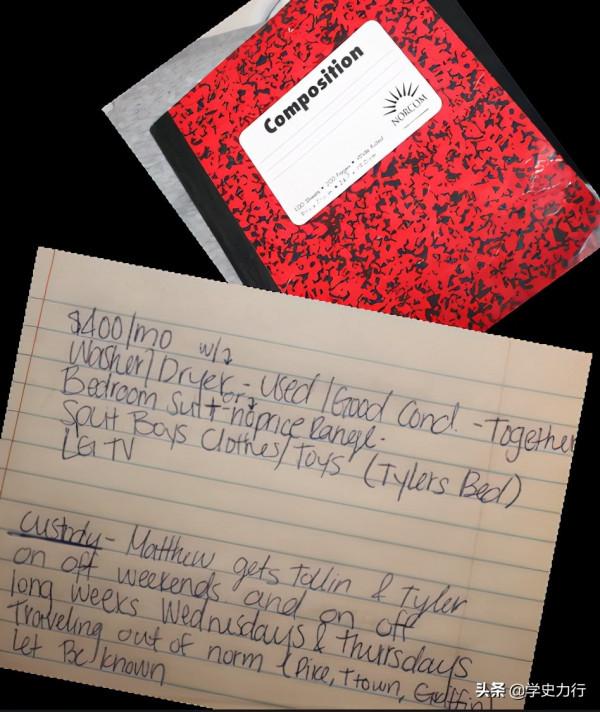 Composition
NORCOM
100 Sheets • 200 Pages • Wide Ruled
$400/mo w/
Washer/Dryer - Used/Good Cond. - Together
Bedroom Suit - no price Range.
Split Boys Clothes/Toys (Tylers Bed)
LG TV
Custody - Matthew gets Tallin & Tyler
on off weekends and on off
long weeks Wednesdays & Thursdays
Traveling out of norm (Pike, Ttown, Griffin)
let Be known
头条 @学史力行